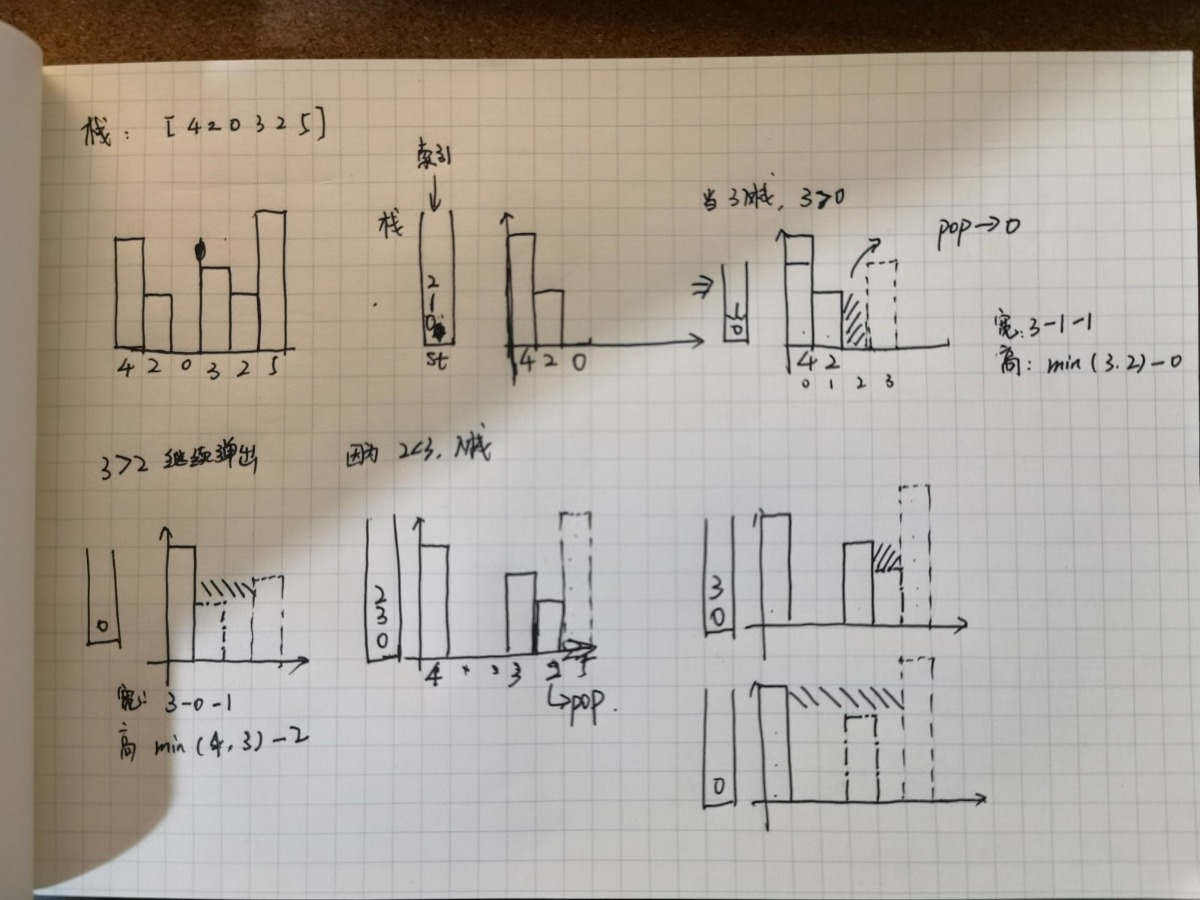 栈: [420325]
索引
栈
2
1
0
st
4 2 0 3 2 5
4 2 0
当3入栈, 3>0
pop→0
⇒
1
0
4 2
0 1 2 3
宽: 3-1-1
高: min(3.2)-0
3>2 继续弹出
因为 2<3, 入栈
0
宽: 3-0-1
高 min(4,3)-2
2
3
0
4 3 2 5
↳pop.
3
0
0